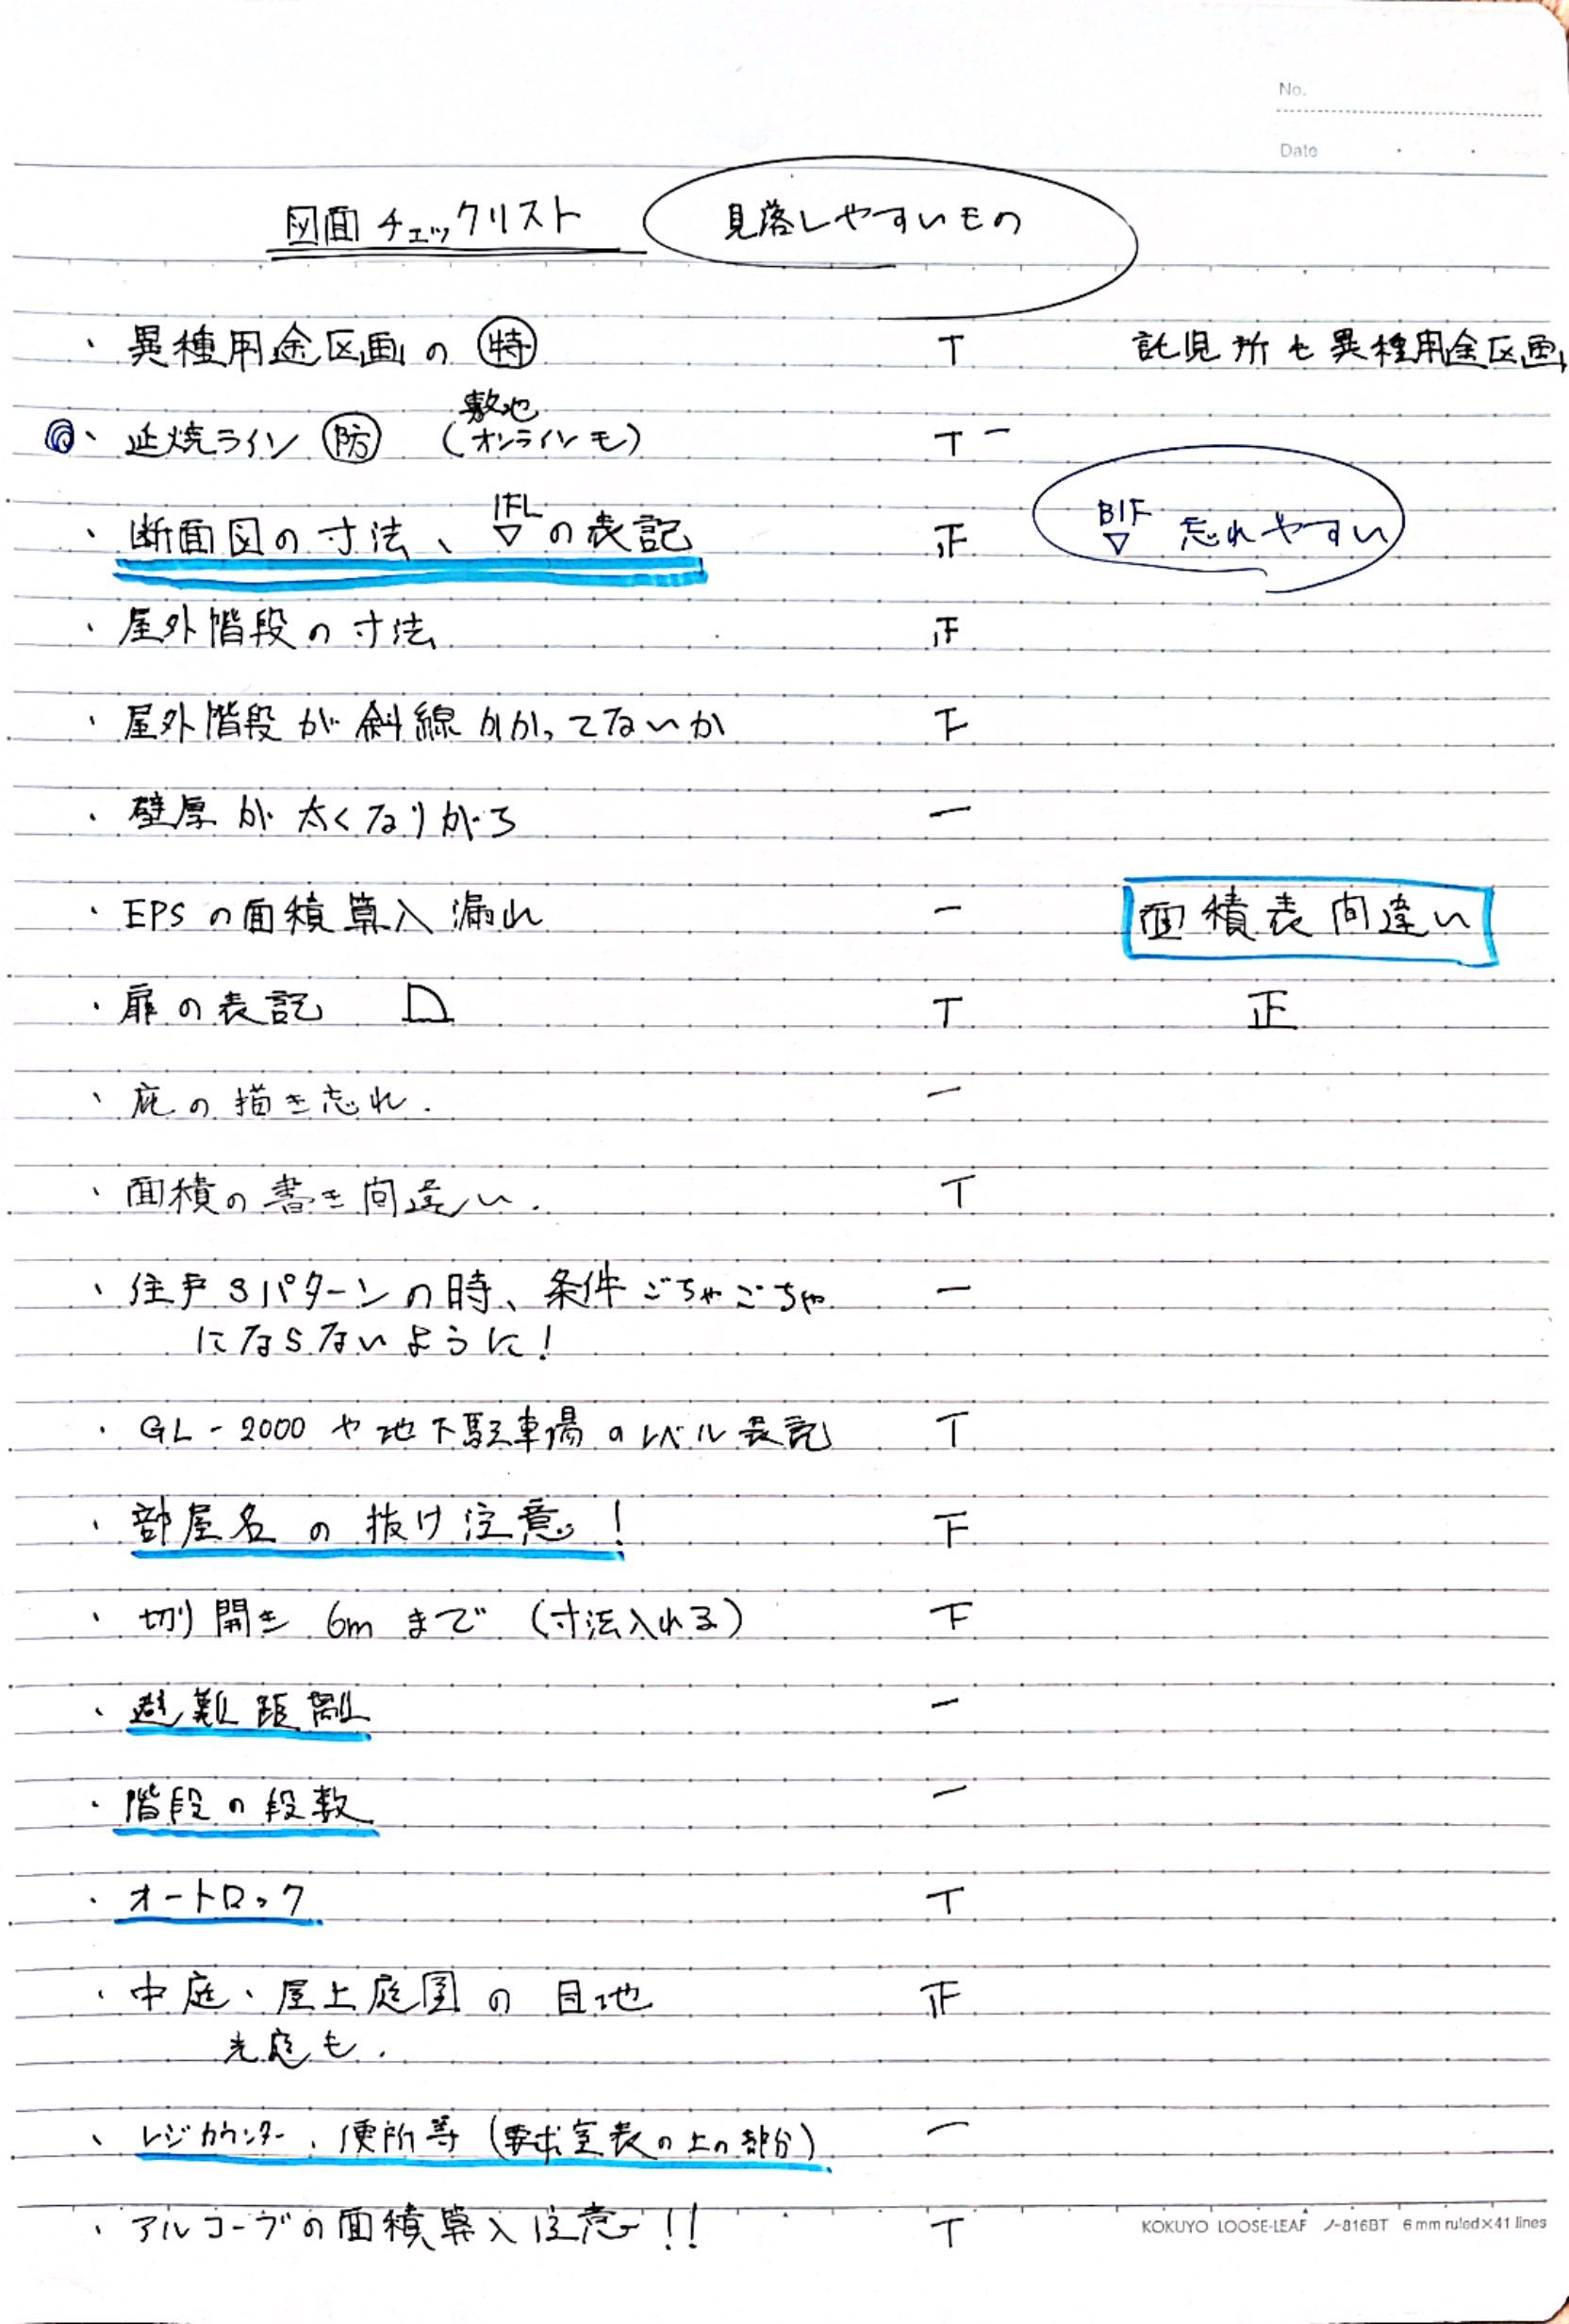 No.
Date
図面チェックリスト 見落しやすいもの
・異種用途区画の㊕ T 託児所も異種用途区画
敷地
◎・延焼ライン 防 (オンラインモ) T 一
・断面図の寸法、1FL▽の表記 正 B1F▽ 忘れやすい
・屋外階段の寸法 正
・屋外階段が斜線かかってないか 下
・壁厚が太くなりがち 一
・EPSの面積算入漏れ 一 面積表間違い
・扉の表記 T 正
・庇の描き忘れ. 一
・面積の書き間違い. T
・住戸3パターンの時、条件ごちゃごちゃ 一
にならないように!
・GL-2000や地下駐車場のレベル表記 T
・部屋名の抜け注意! 下
・切り開き 6mまで(寸法入れる) 下
・避難距離 一
・階段の段数 一
・オートロック T
・中庭・屋上庭園の目地 正
光庭も.
・レジカウンター、便所等(要求室表の上の部分) 一
・アルコーブの面積算入注意!! T
KOKUYO LOOSE-LEAF ノ-816BT 6 mm ruled×41 lines